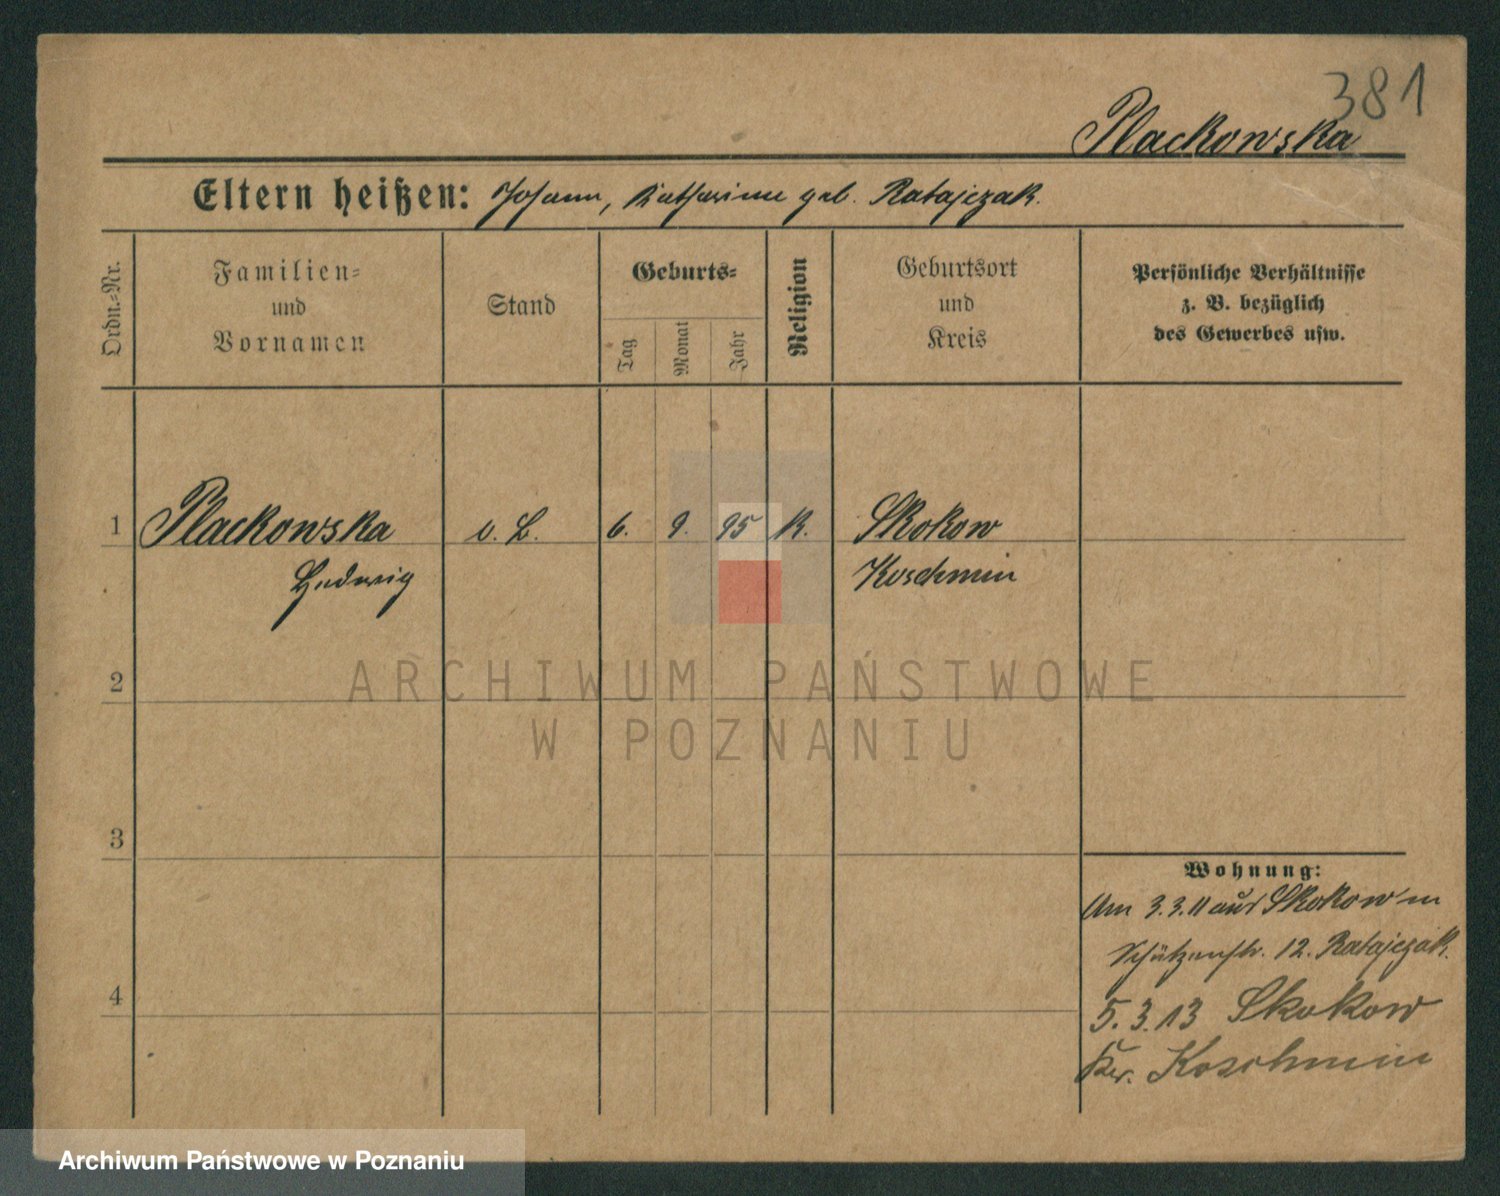 381
Plackowska
Eltern heißen: Johann, Katharina geb. Ratajczak.
Ordn.-Nr.
Familien-
und
Vornamen
Stand
Geburts-
Tag
Monat
Jahr
Religion
Geburtsort
und
Kreis
Persönliche Verhältnisse
z. B. bezüglich
des Gewerbes usw.
1 Plackowska o. B. 6. 9. 95 K. Skokow
Hedwig Koschmin
2
ARCHIWUM PAŃSTWOWE
W POZNANIU
3
Wohnung:
Am 3.3.11 aus Skokow in
Schützenstr. 12. Ratajczak.
4
5.3.13 Skokow
Kr. Koschmin
Archiwum Państwowe w Poznaniu